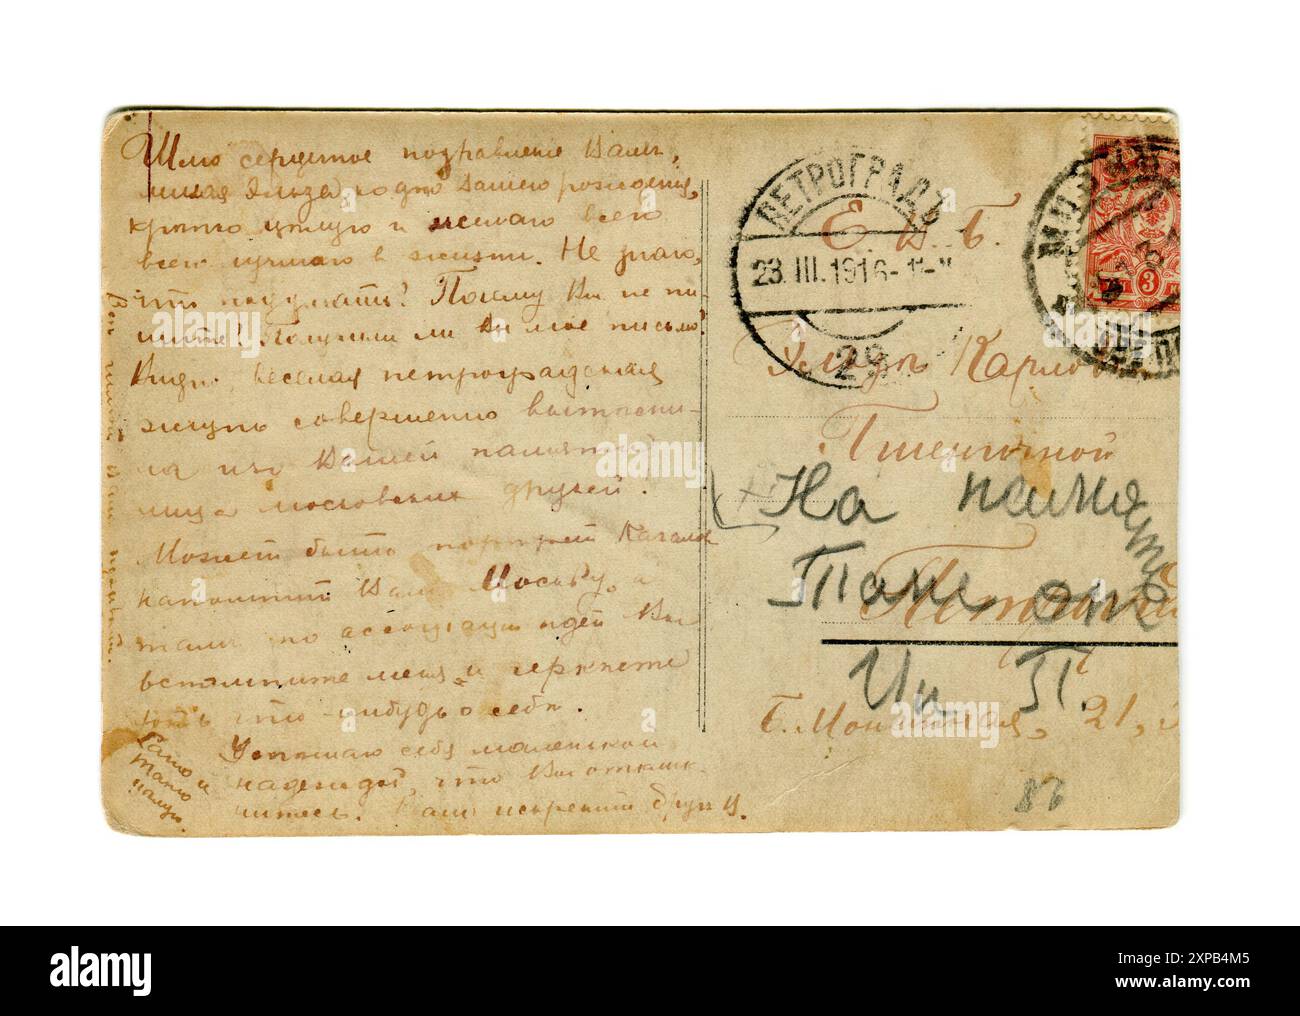 Шлю сердечное поздравление Вам,
милая Эльза, ко дню Вашего рождения,
крепко целую и желаю всего
всего лучшаго в жизни. Не знаю,
что подумать? Почему Вы не пи-
шите? Получили ли Вы мое письмо?
Видно, веселая петроградская
жизнь совершенно вытесни-
ла из Вашей памяти
лица московских друзей.
Может быть портрет Качалова
напомнит Вам Москву, а
там по ассоциации идей Вы
вспомните меня и черкнете
хоть что-нибудь о себе.
Утешаю себя маленькой
надеждой, что Вы отклик-
нитесь. Ваш искренний друг В.
Петроградъ
23.III.1916
29
3
Е. В. Б.
Эльзѣ Карловнѣ
Пшеничной
На память
Тане от
Ин П.
Б. Монетная, 21,
86
alamy
alamy
Image ID: 2XPB4M5
www.alamy.com